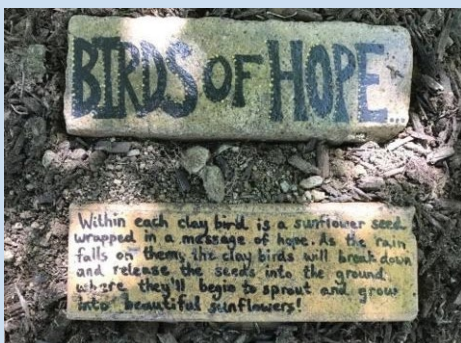 BIRDS OF HOPE...
Within each clay bird is a sunflower seed
wrapped in a message of hope. As the rain
falls on them, the clay birds will break down
and release the seeds into the ground,
where they'll begin to sprout and grow
into beautiful sunflowers!